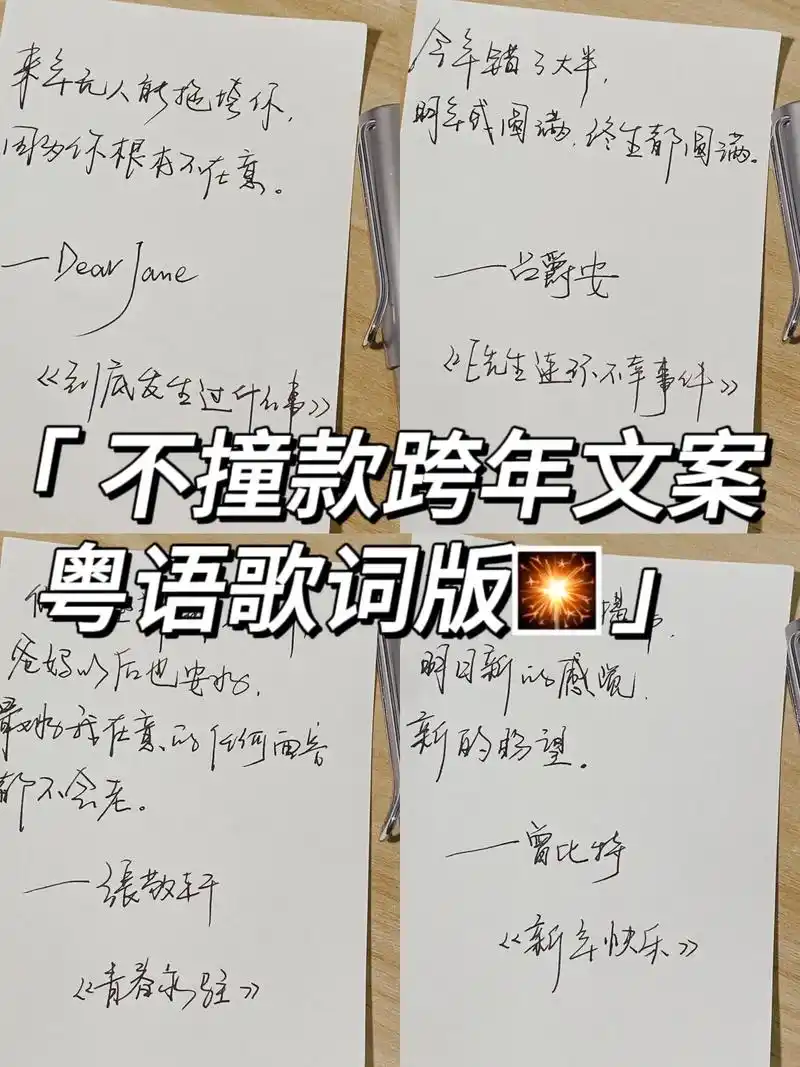 来年无人能拖垮你,
因为你根本不在意。
—Dear Jane
《到底发生过什么事》
今年错了大半,
明年或圆满,终生都圆满。
—吕爵安
《E先生连环不幸事件》
「不撞款跨年文案
粤语歌词版」
爸妈以后也安好,
最好我在意的任何面容
都不会老。
—張敬轩
《青春永驻》
明日新的感觉,
新的盼望。
—曾比特
《新年快乐》